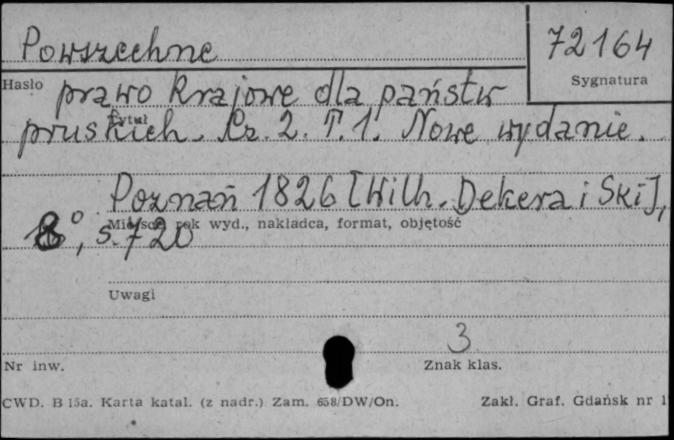 Powszechne
72164
Hasło
Sygnatura
prawo krajowe dla państw
Tytuł
pruskich. Cz. 2. T. 1. Nowe wydanie.
Poznań 1826 [Wilh. Dekera i Ski],
Miejsce, rok wyd., nakładca, format, objętość
8°, s. 720
Uwagi
3
Nr inw.
Znak klas.
CWD. B 15a. Karta katal. (z nadr.) Zam. 658/DW/On.
Zakł. Graf. Gdańsk nr 1